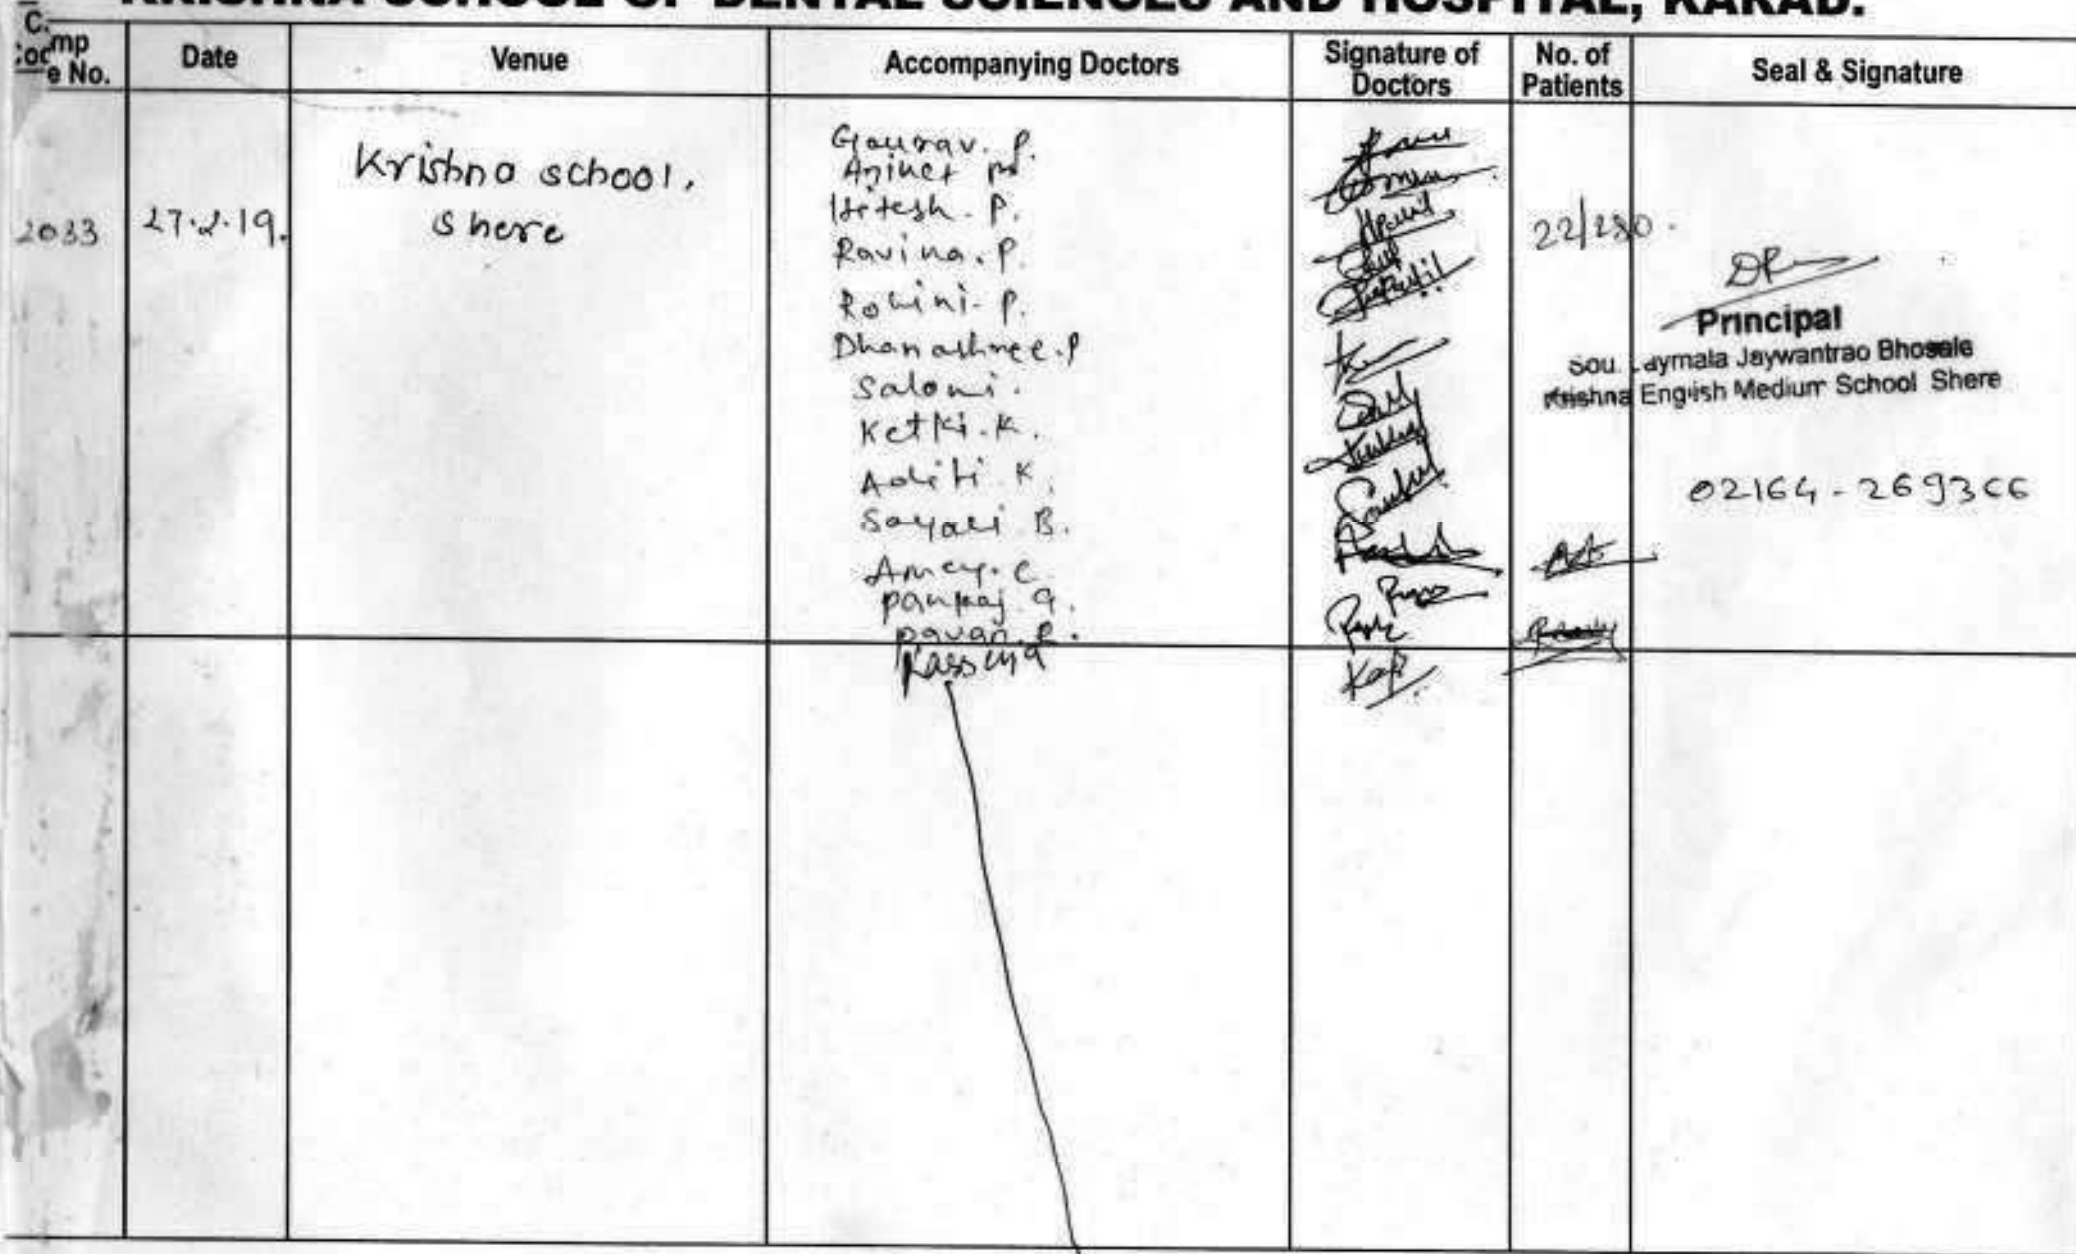 KRISHNA SCHOOL OF DENTAL SCIENCES AND HOSPITAL, KARAD.
Camp Code No.
Date
Venue
Accompanying Doctors
Signature of Doctors
No. of Patients
Seal & Signature
2033
27.2.19.
Krishna school,
Shere
Gaurav. P.
Aniket M
Hitesh. P.
Ravina. P.
Rohini. P.
Dhanashree. P
Saloni.
Ketki. K.
Aditi K.
Sayali B.
Amey. C
Pankaj G.
Pavan. R.
22/280.
Principal
Sou. Jaymala Jaywantrao Bhosale
Krishna English Medium School Shere
02164-269366